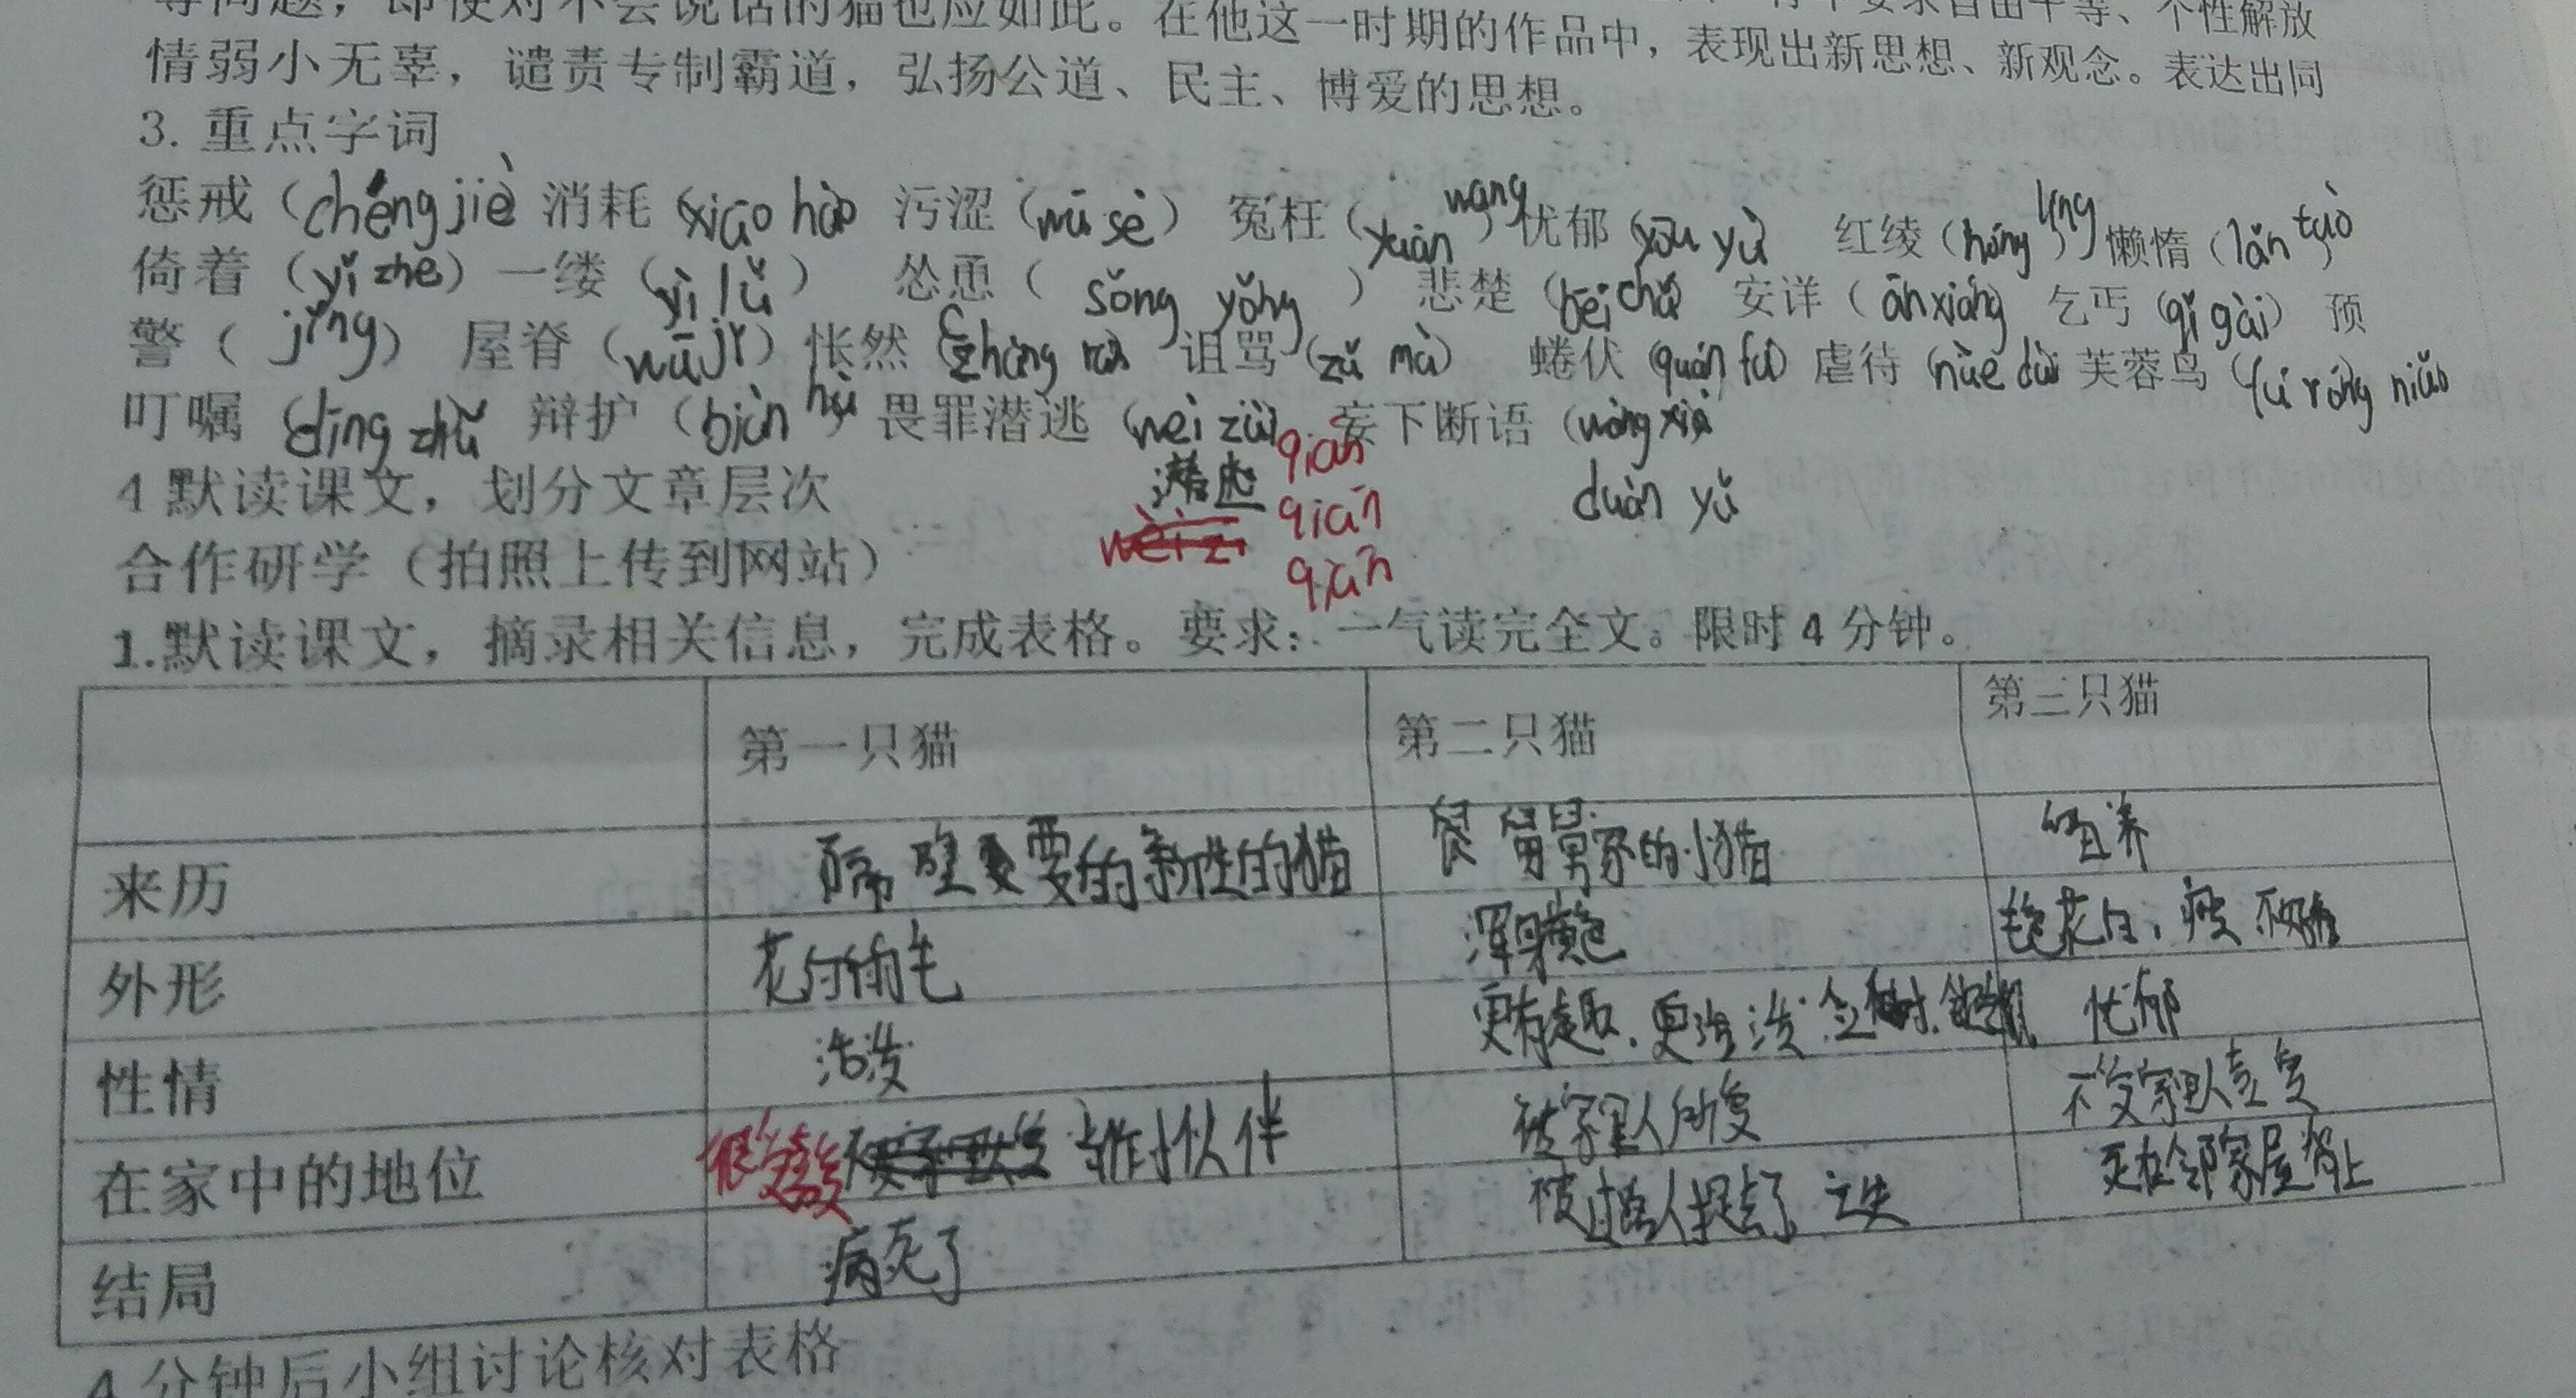 等问题，即使对不会说话的猫也应如此。在他这一时期的作品中，表现出新思想、新观念。表达出同
情弱小无辜，谴责专制霸道，弘扬公道、民主、博爱的思想。
3. 重点字词
惩戒（chéng jiè 消耗（xiāo hào 污涩（wū sè）冤枉（yuān wang）忧郁（yōu yù）红绫（hóng líng）懒惰（lǎn duò
倚着（yǐ zhe）一缕（yì lǚ）怂恿（sǒng yǒng）悲楚（bēi chǔ）安详（ān xiáng）乞丐（qǐ gài）预
警（jǐng）屋脊（wū jǐ）怅然（zhàng rán 诅骂（zǔ mà）蜷伏（quán fú）虐待（nüè dài 芙蓉鸟（fú róng niǎo
叮嘱（dīng zhǔ 辩护（biàn hù）畏罪潜逃（wèi zuì）妄下断语（wàng xià
潜逃 qián
duàn yǔ
qián
qián
4 默读课文，划分文章层次
合作研学（拍照上传到网站）
1.默读课文，摘录相关信息，完成表格。要求：一气读完全文。限时 4 分钟。
第一只猫 第二只猫 第三只猫
来历 隔壁要的新生的猫 舅舅家的小猫 留养
外形 花白的毛 浑身黄色 毛色花白，瘦 不好看
性情 活泼 更有趣、更活泼 忧郁
在家中的地位 很受喜爱 小伙伴 被家里人所爱 不受家里人喜爱
结局 病死了 被过路人捉去了 亡失 死在邻家屋脊上
4 分钟后小组讨论核对表格